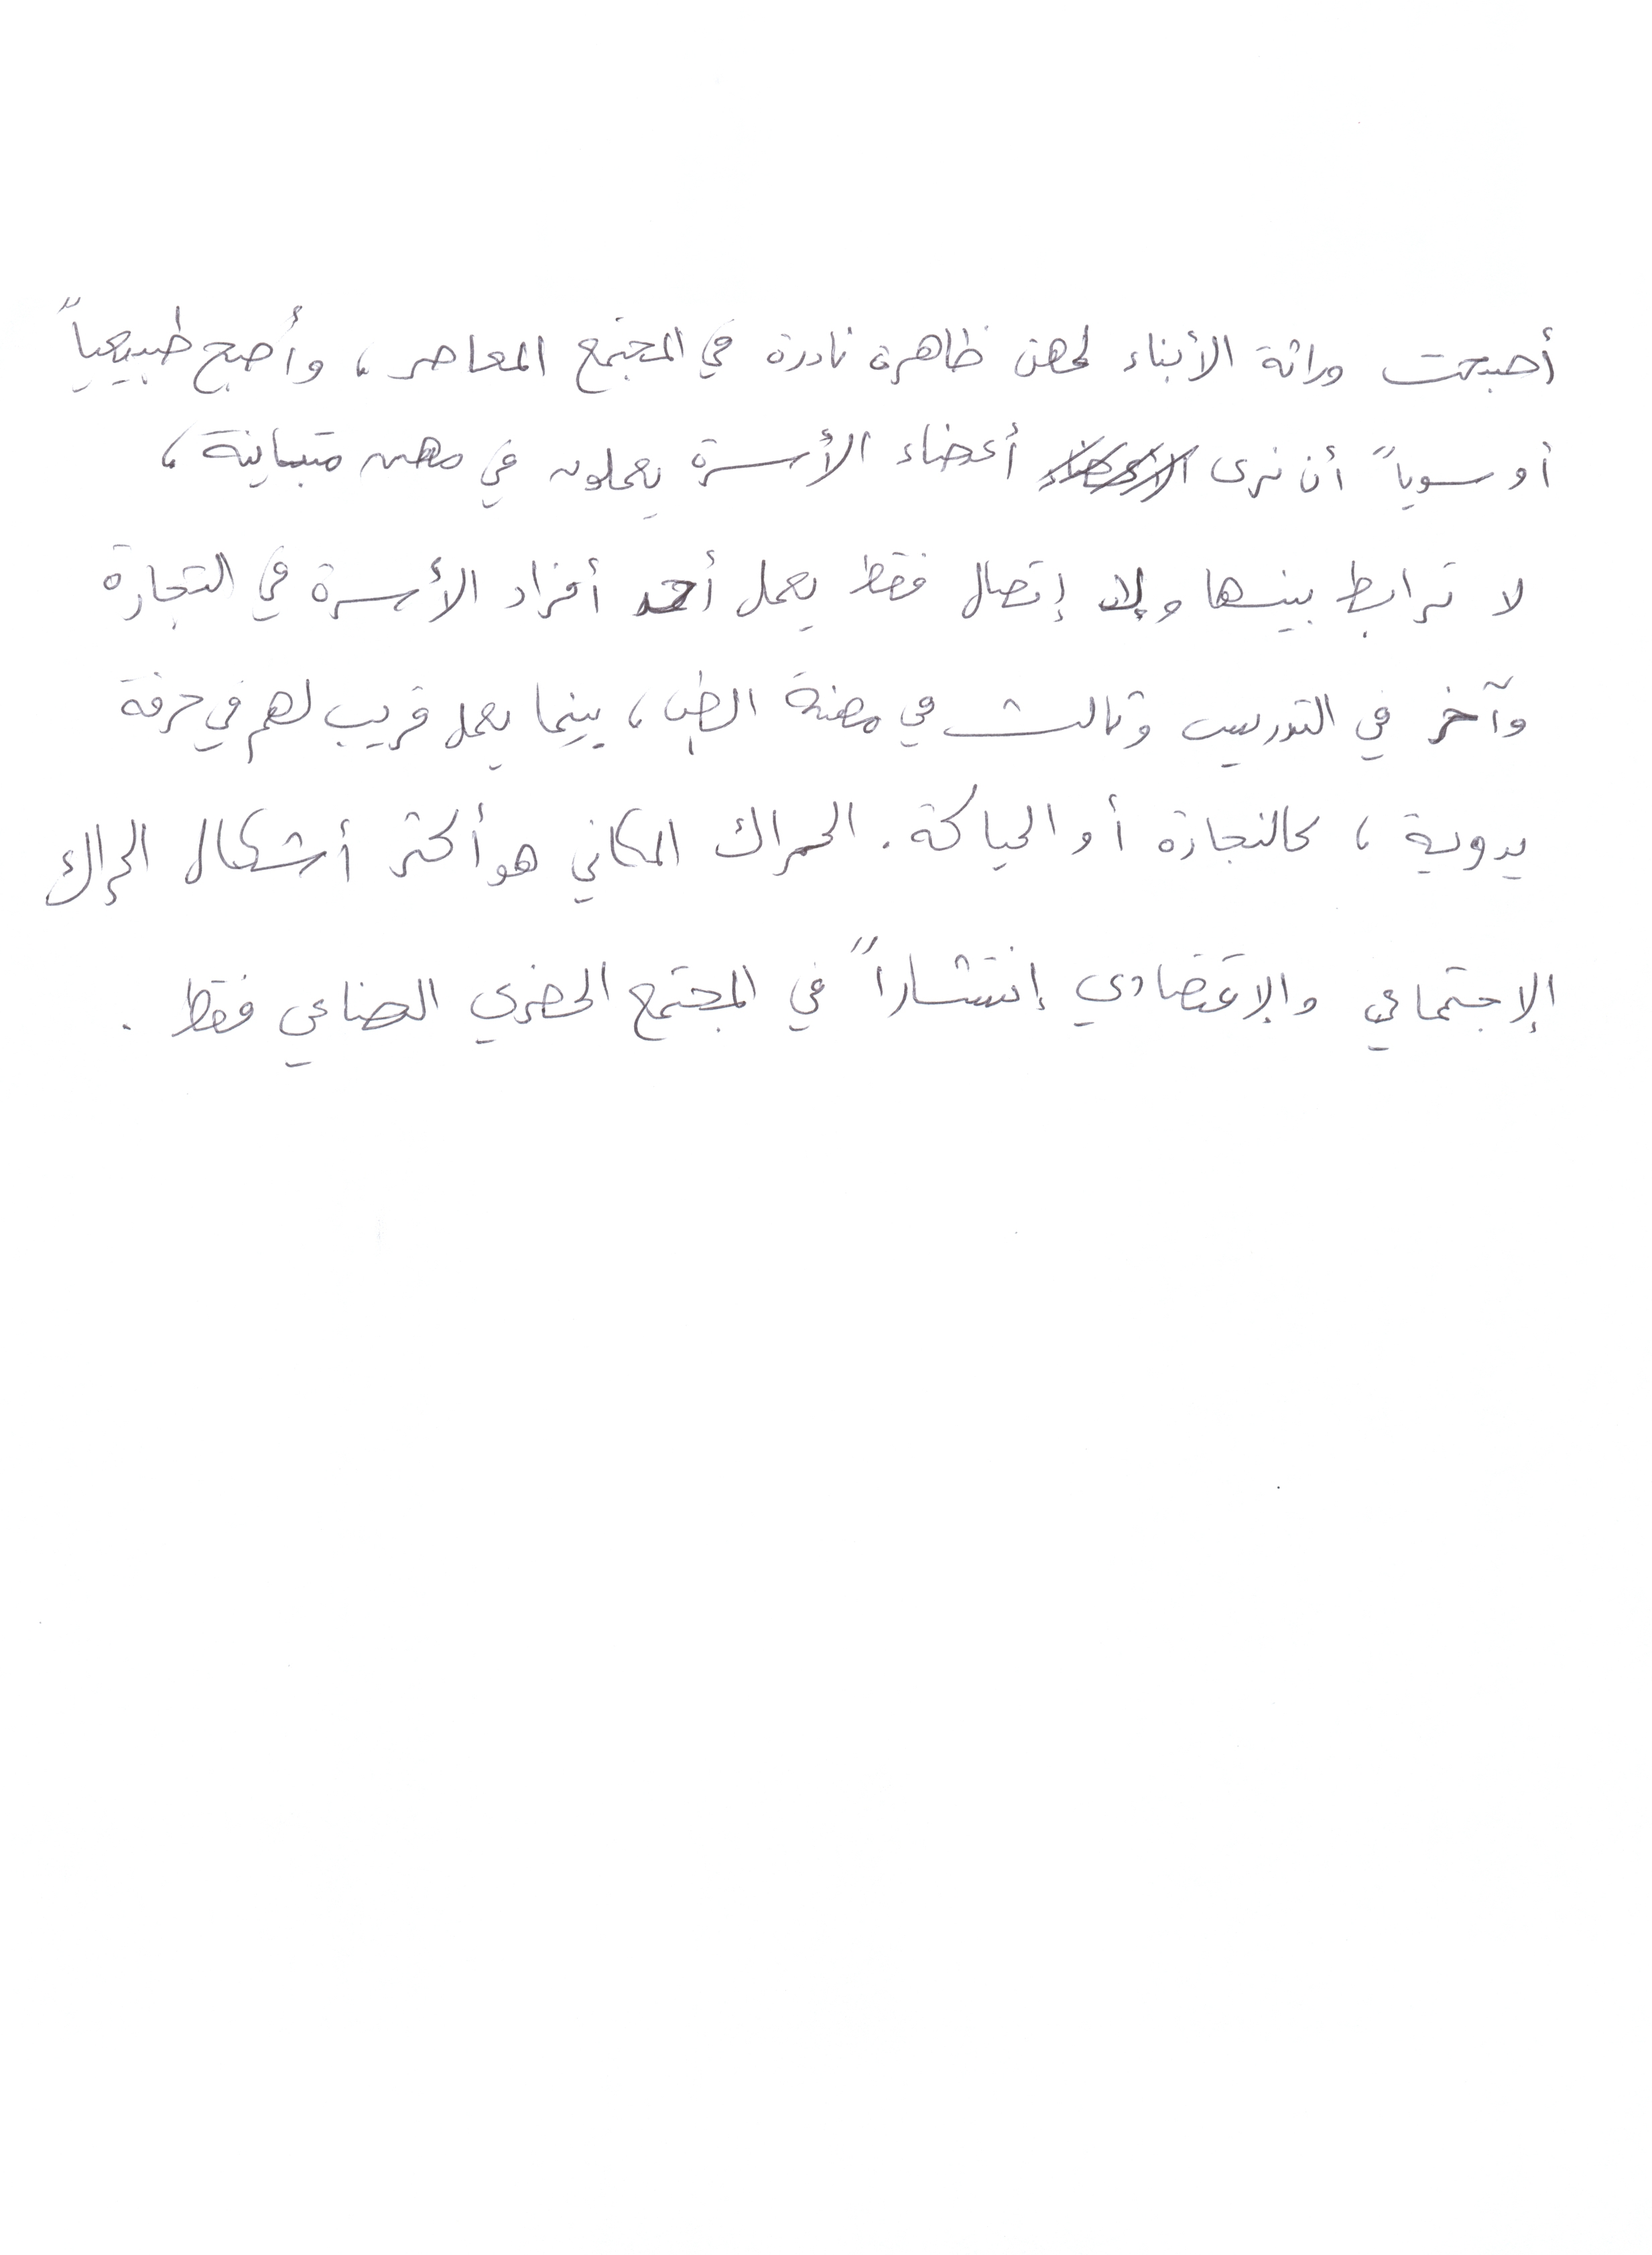 أصبحت وراثة الأبناء لمهن ظاهرة نادرة في المجتمع المعاصر، وأصبح طبيعياً
أو سوياً أن نرى أعضاء الأسرة يعملون في مهن متباينة،
لا ترابط بينها ولا إتصال فقط يعمل أحد أفراد الأسرة في التجارة
وآخر في التدريب وثالث في مهنة الطب، بينما يعمل قريب لهم في حرفة
يدوية، كالنجارة أو الحياكة. الحراك المكاني هو أكثر أشكال الحراك
الإجتماعي والإقتصادي إنتشاراً في المجتمع الحضري الصناعي فقط.